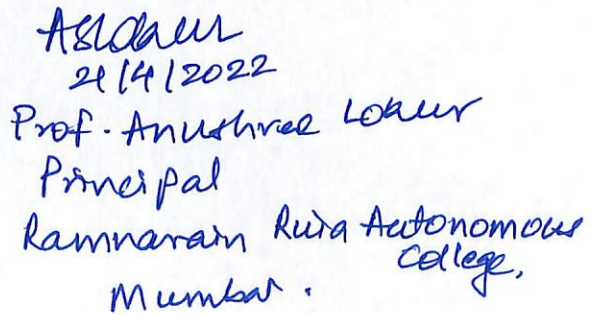 ASLokur
21/4/2022
Prof. Anushree Lokur
Principal
Ramnarain Ruia Autonomous
College,
Mumbai.